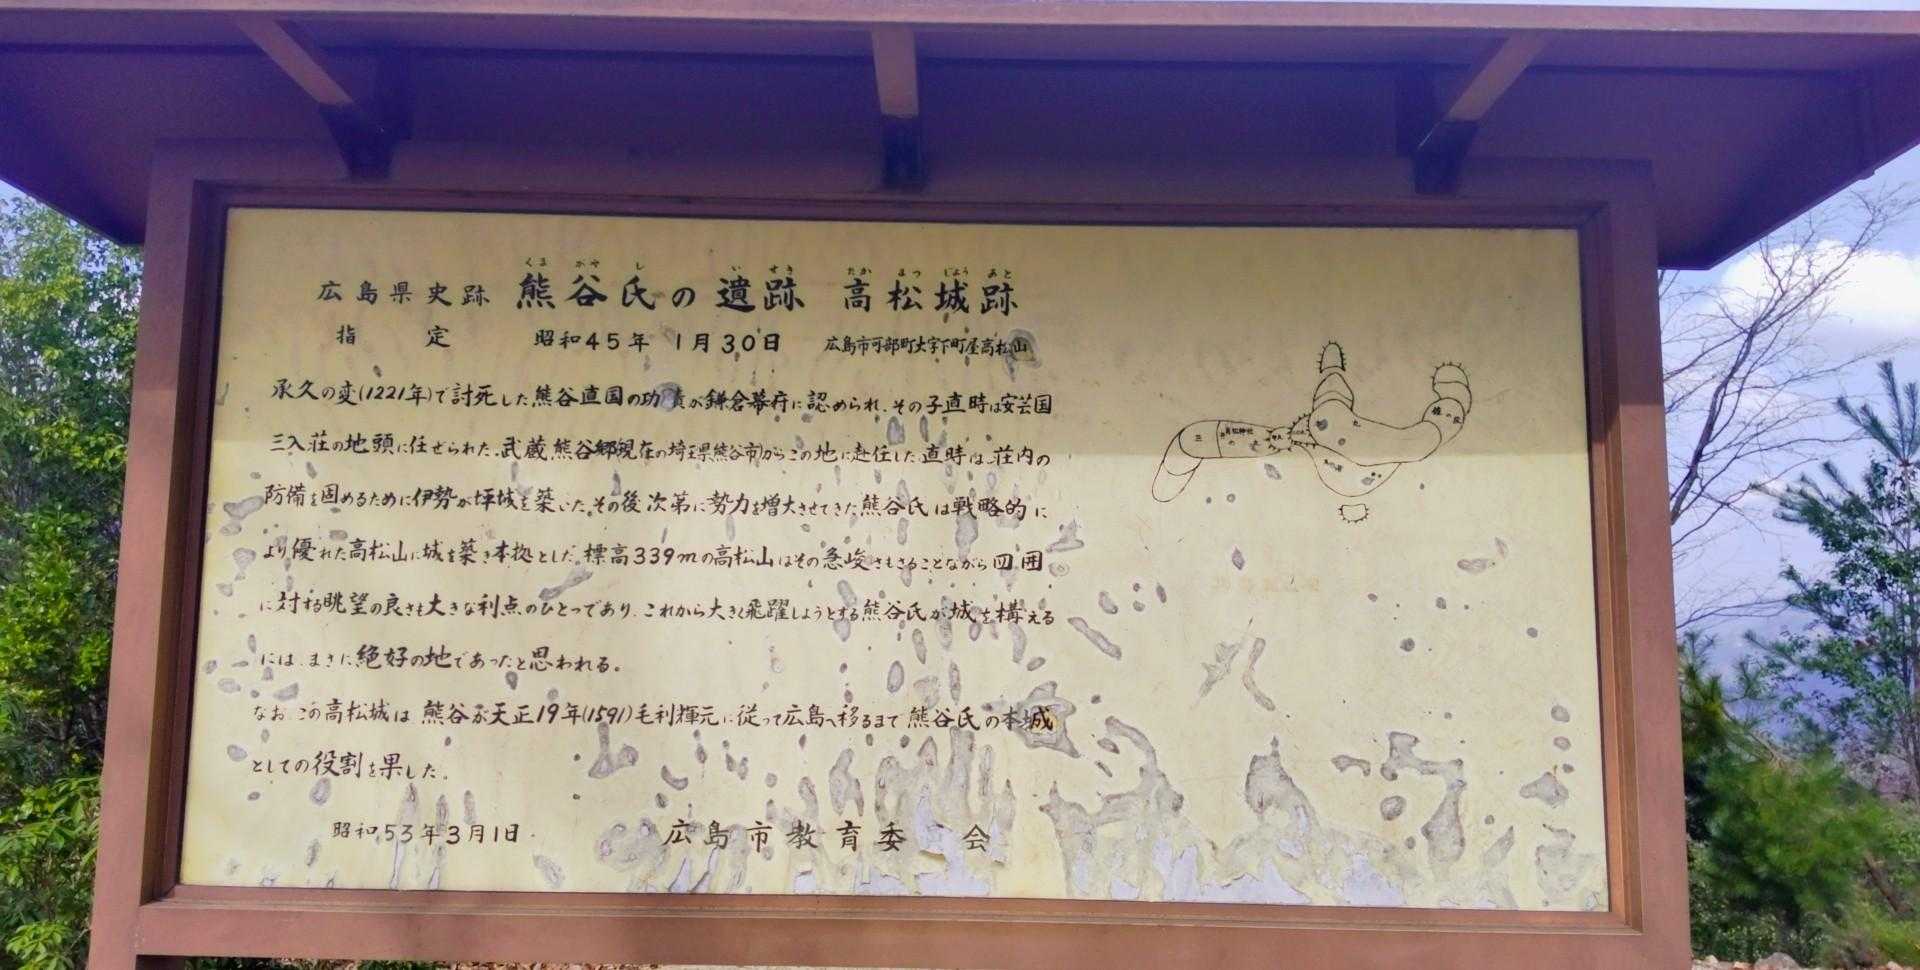 くま がや し い せき たか まつ じょう あと
広島県史跡 熊谷氏の遺跡 高松城跡
指 定 昭和45年 1月30日 広島市可部町大字下町屋高松山
承久の変(1221年)で討死した熊谷直国の功績が鎌倉幕府に認められ、その子直時は安芸国
三入荘の地頭に任ぜられた。武蔵熊谷郷現在の埼玉県熊谷市)からこの地に赴任した直時は、荘内の
防備を固めるために伊勢が坪城を築いた。その後次第に勢力を増大させてきた熊谷氏は戦略的に
より優れた高松山に城を築き本拠とした。標高339mの高松山はその急峻さもさることながら四囲
に対する眺望の良さも大きな利点のひとつであり、これから大きく飛躍しようとする熊谷氏が城を構える
には、まさに絶好の地であったと思われる。
なお、この高松城は 熊谷が天正19年(1591)毛利輝元に従って広島へ移るまで熊谷氏の本城
としての役割を果した。
昭和53年3月1日 広島市教育委 会
三 高松神社